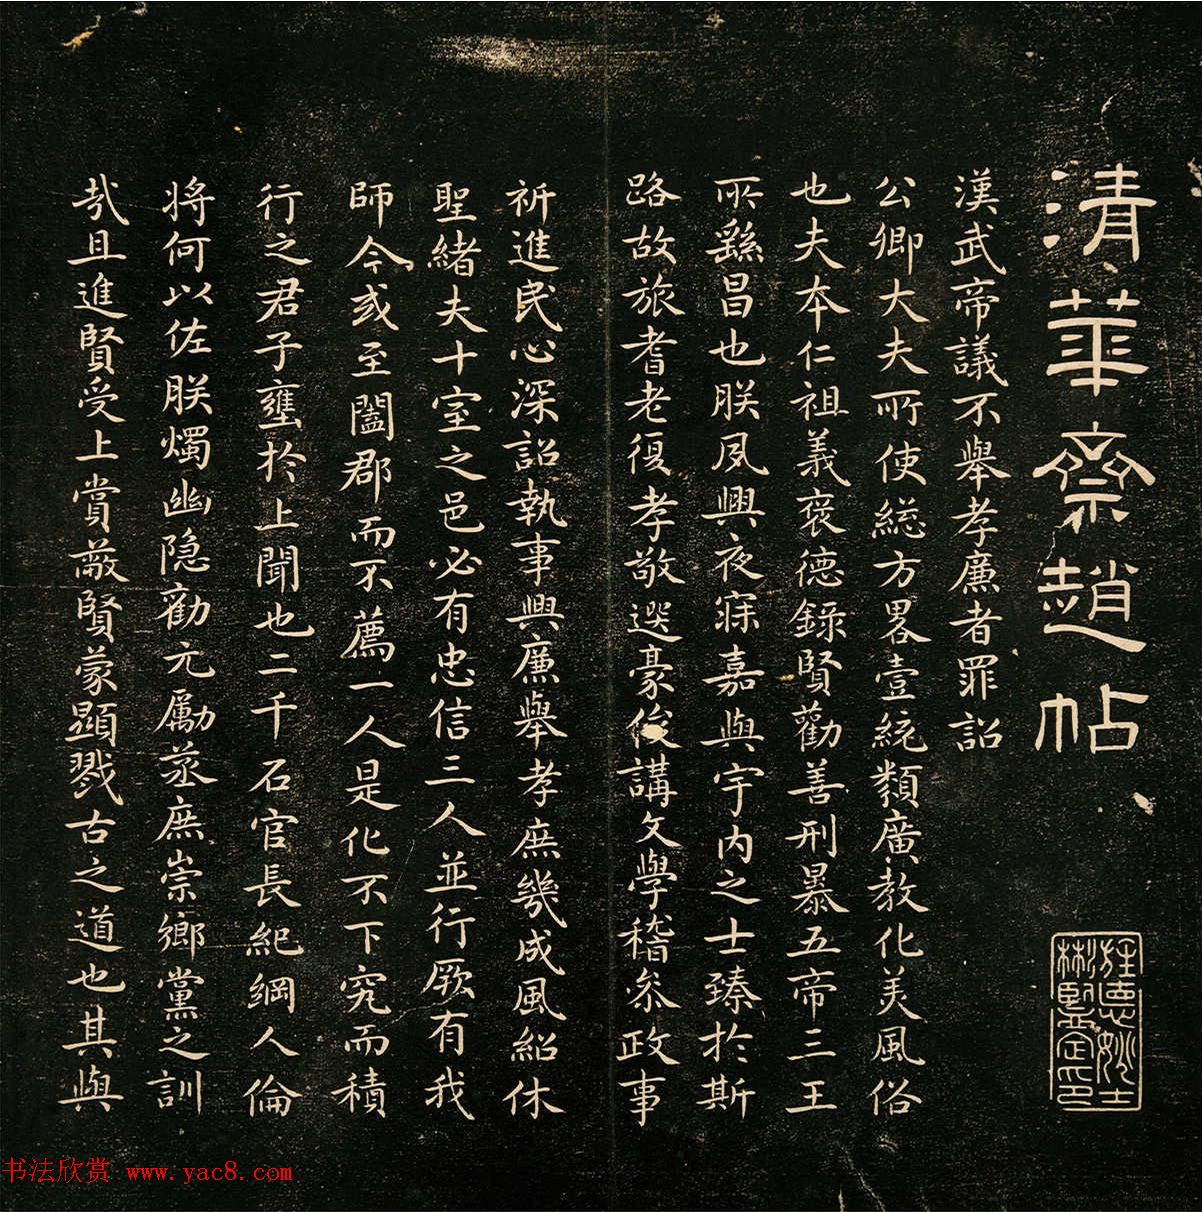 清華齋趙帖
漢武帝議不舉孝廉者罪詔
公卿大夫所使總方畧壹統類廣教化美風俗
也夫本仁祖義褒德錄賢勸善刑暴五帝三王
所繇昌也朕夙興夜寐嘉與宇內之士臻於斯
路故旅耆老復孝敬選豪俊講文學稽參政事
祈進民心深詔執事興廉舉孝庶幾成風紹休
聖緒夫十室之邑必有忠信三人並行厥有我
師今或至闔郡而不薦一人是化不下究而積
行之君子壅於上聞也二千石官長紀綱人倫
將何以佐朕燭幽隱勸元勵蒸庶崇鄉黨之訓
哉且進賢受上賞蔽賢蒙顯戮古之道也其與
书法欣赏 www.yac8.com